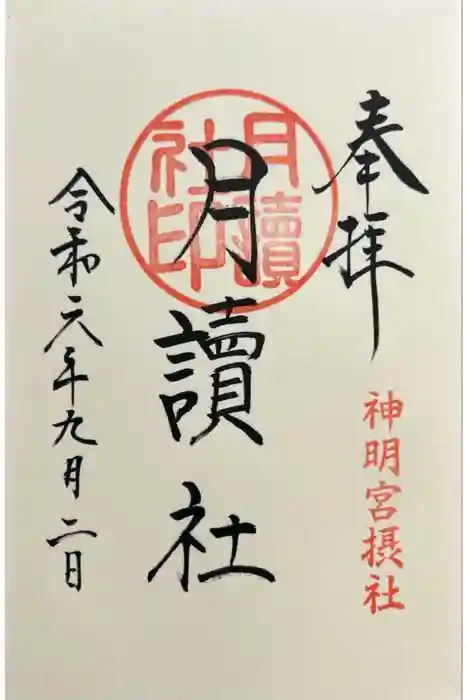 奉拝
神明宮摂社
月讀社
月讀社印
令和六年九月二日